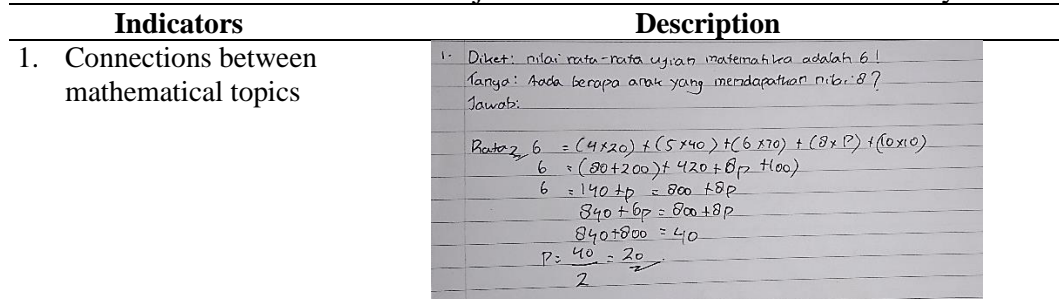 Indicators Description
1. Connections between
mathematical topics
1. Diket: nilai rata-rata ujian matematika adalah 6!
Tanya: Aada berapa anak yang mendapatkan nilai 8?
Jawab:
Rata2 6 = (4x20) + (5x40) + (6x70) + (8xP) + (10x10)
6 = (80+200)+ 420+8p +100)
6 = 140 +p = 800 +8p
840 + 6p = 800 +8p
840+800 = 40
P = 40 = 20
2